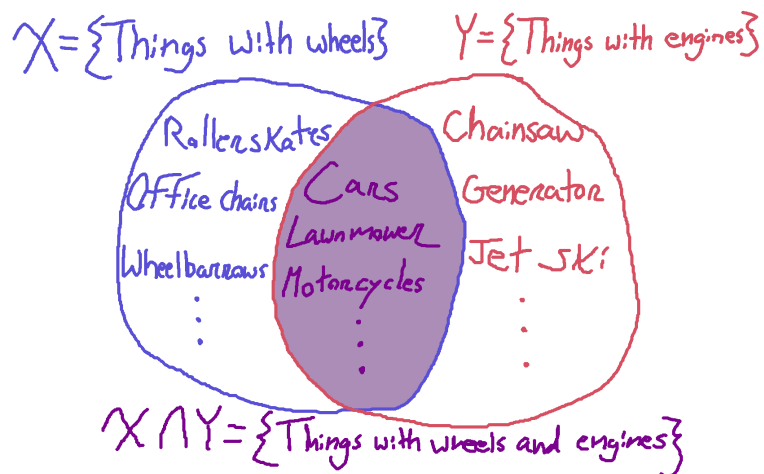 X={Things with wheels}
Y={Things with engines}
Rollerskates
Office chairs
Wheelbarrows
Cars
Lawnmower
Motorcycles
Chainsaw
Generator
Jet ski
X∩Y={Things with wheels and engines}